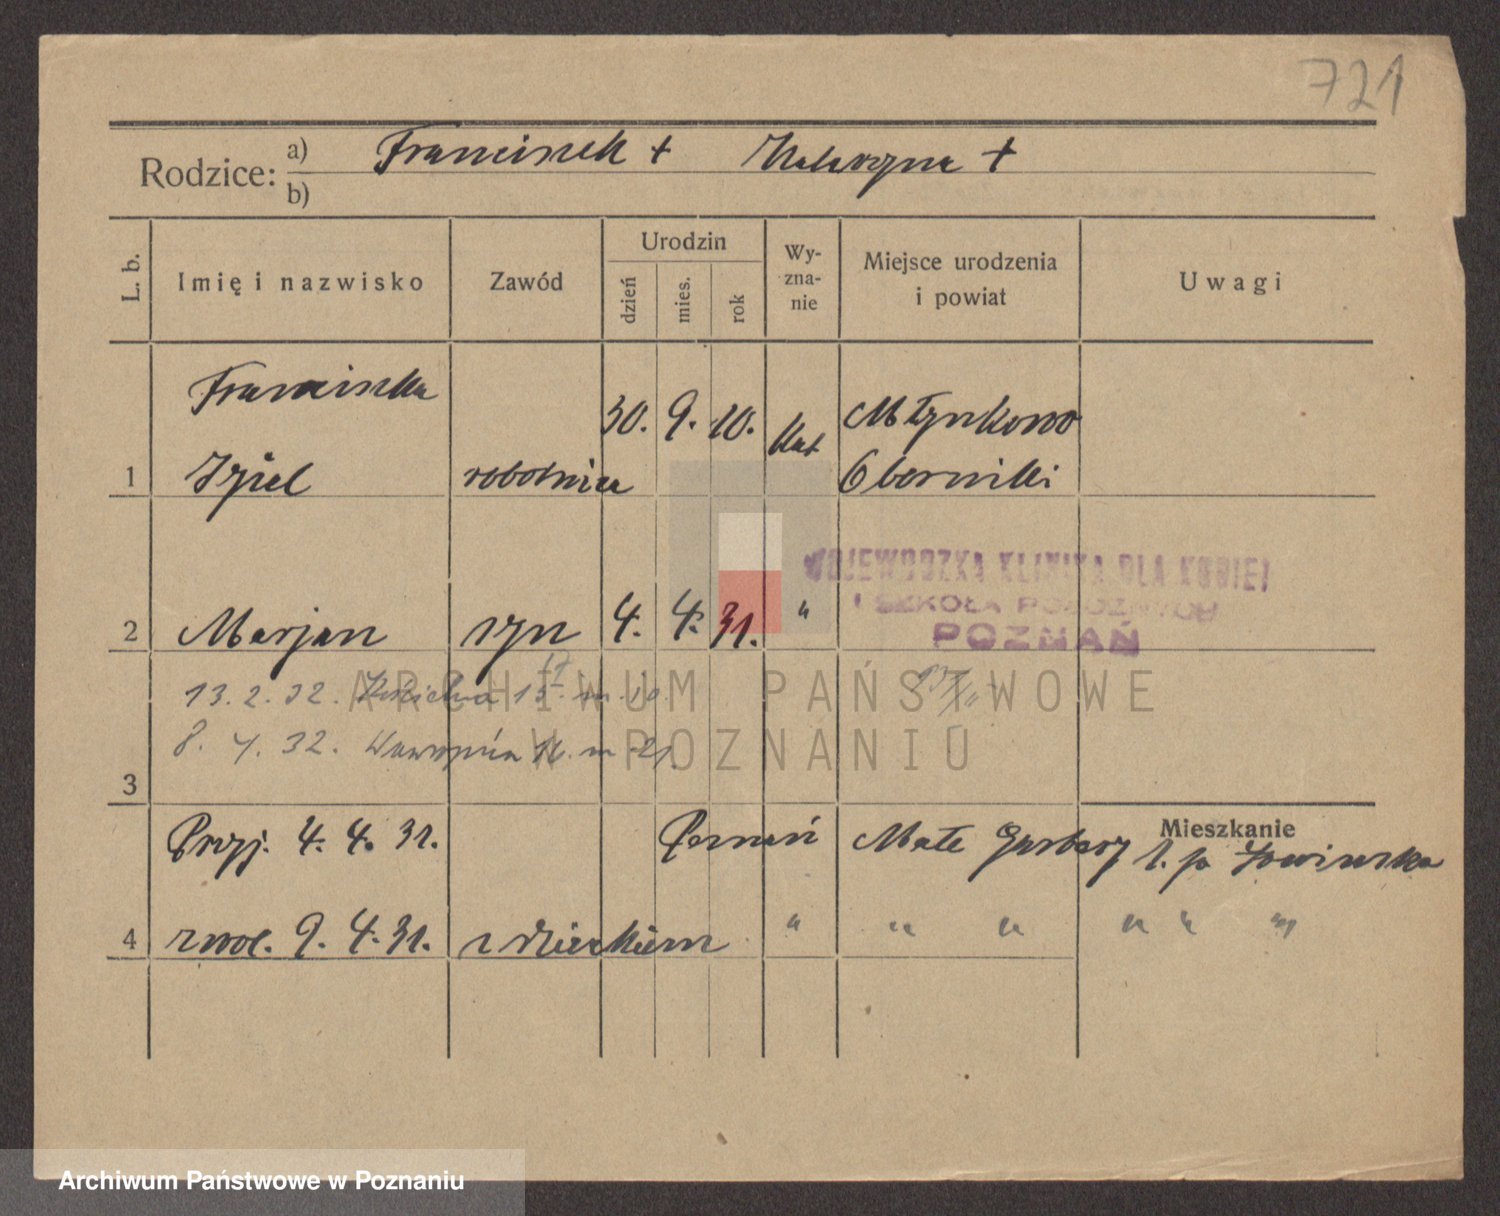 721
Rodzice: a) Franciszek + Katarzyna +
b)
L. b.
Imię i nazwisko
Zawód
Urodzin
dzień
mies.
rok
Wy-
zna-
nie
Miejsce urodzenia
i powiat
Uwagi
Franciszka 30. 9. 10. Kat Młynkowo
1 robotnica Oborniki
WOJEWÓDZKA KLINIKA DLA KOBIET
I SZKOŁA POŁOŻNYCH
POZNAŃ
2 Marjan syn 4. 4. 31. "
13. 2. 32. 15 m. 10.
8. 4. 32. m 21.
3
Mieszkanie
Przyj. 4. 4. 31. Poznań Małe Garbary 1.
4 zwol. 9. 4. 31. z dzieckiem " " " " " "
ARCHIWUM PAŃSTWOWE
W POZNANIU
Archiwum Państwowe w Poznaniu